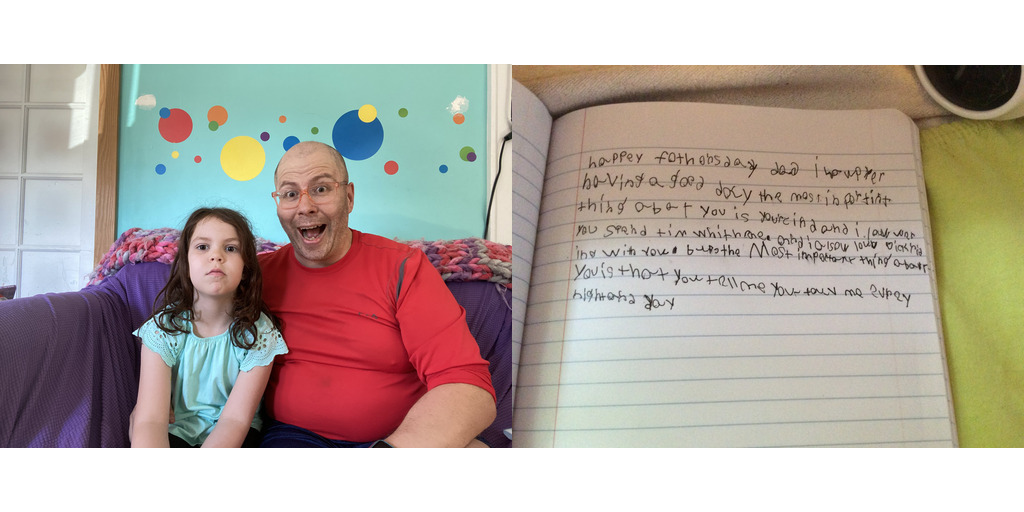 happey fathobsday dad i how yer
having a good day the most inportint
thing abart you is yourcind and i
you spend tim whith me. and i also love
ing with you. but the Most important thing abaut
you is that you tell me you me evrey
night and day